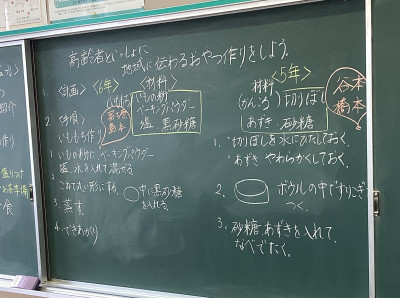 高齢者といっしょに
地域に伝わるおやつ作りをしよう。
1. <計画>
<6年>
<材料>
(いももち)
いもの粉
ベーキングパウダー
塩 黒砂糖
2. <手順>
いももち作り
1. いもの粉に、ベーキングパウダー
塩、水を入れて混ぜる
2. これを丸い形にする。
中に黒砂糖
を入れる。
3. 蒸す。
4. できあがり
<5年>
材料
(かんころ)
切りぼし
あずき・砂糖
谷本
橋本
1. 切りぼしを水にひたしておく。
あずき やわらかくしておく。
2.
ボウルの中ですりこぎ
つく。
3. 砂糖、あずきを入れて、
なべでたく。